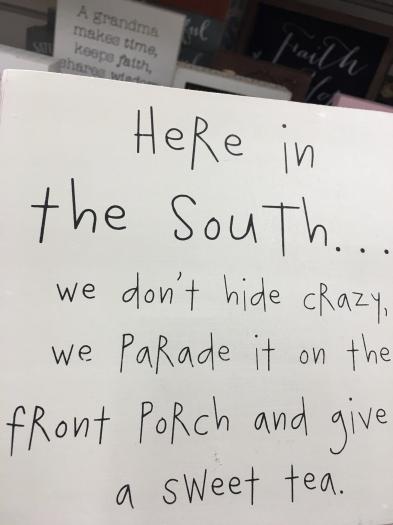 A grandma
makes time,
keeps faith,
shares
Faith
HeRe in
the SouTh...
we don't hide cRazy,
we PaRade it on the
fRont PoRch and give
a sweet tea.